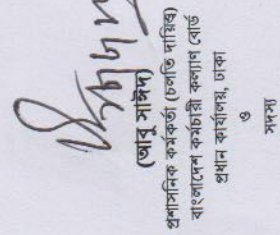 (আবু সাঈদ)
প্রশাসনিক কর্মকর্তা (চলতি দায়িত্ব)
বাংলাদেশ কর্মচারী কল্যাণ বোর্ড
প্রধান কার্যালয়, ঢাকা
ও
সদস্য